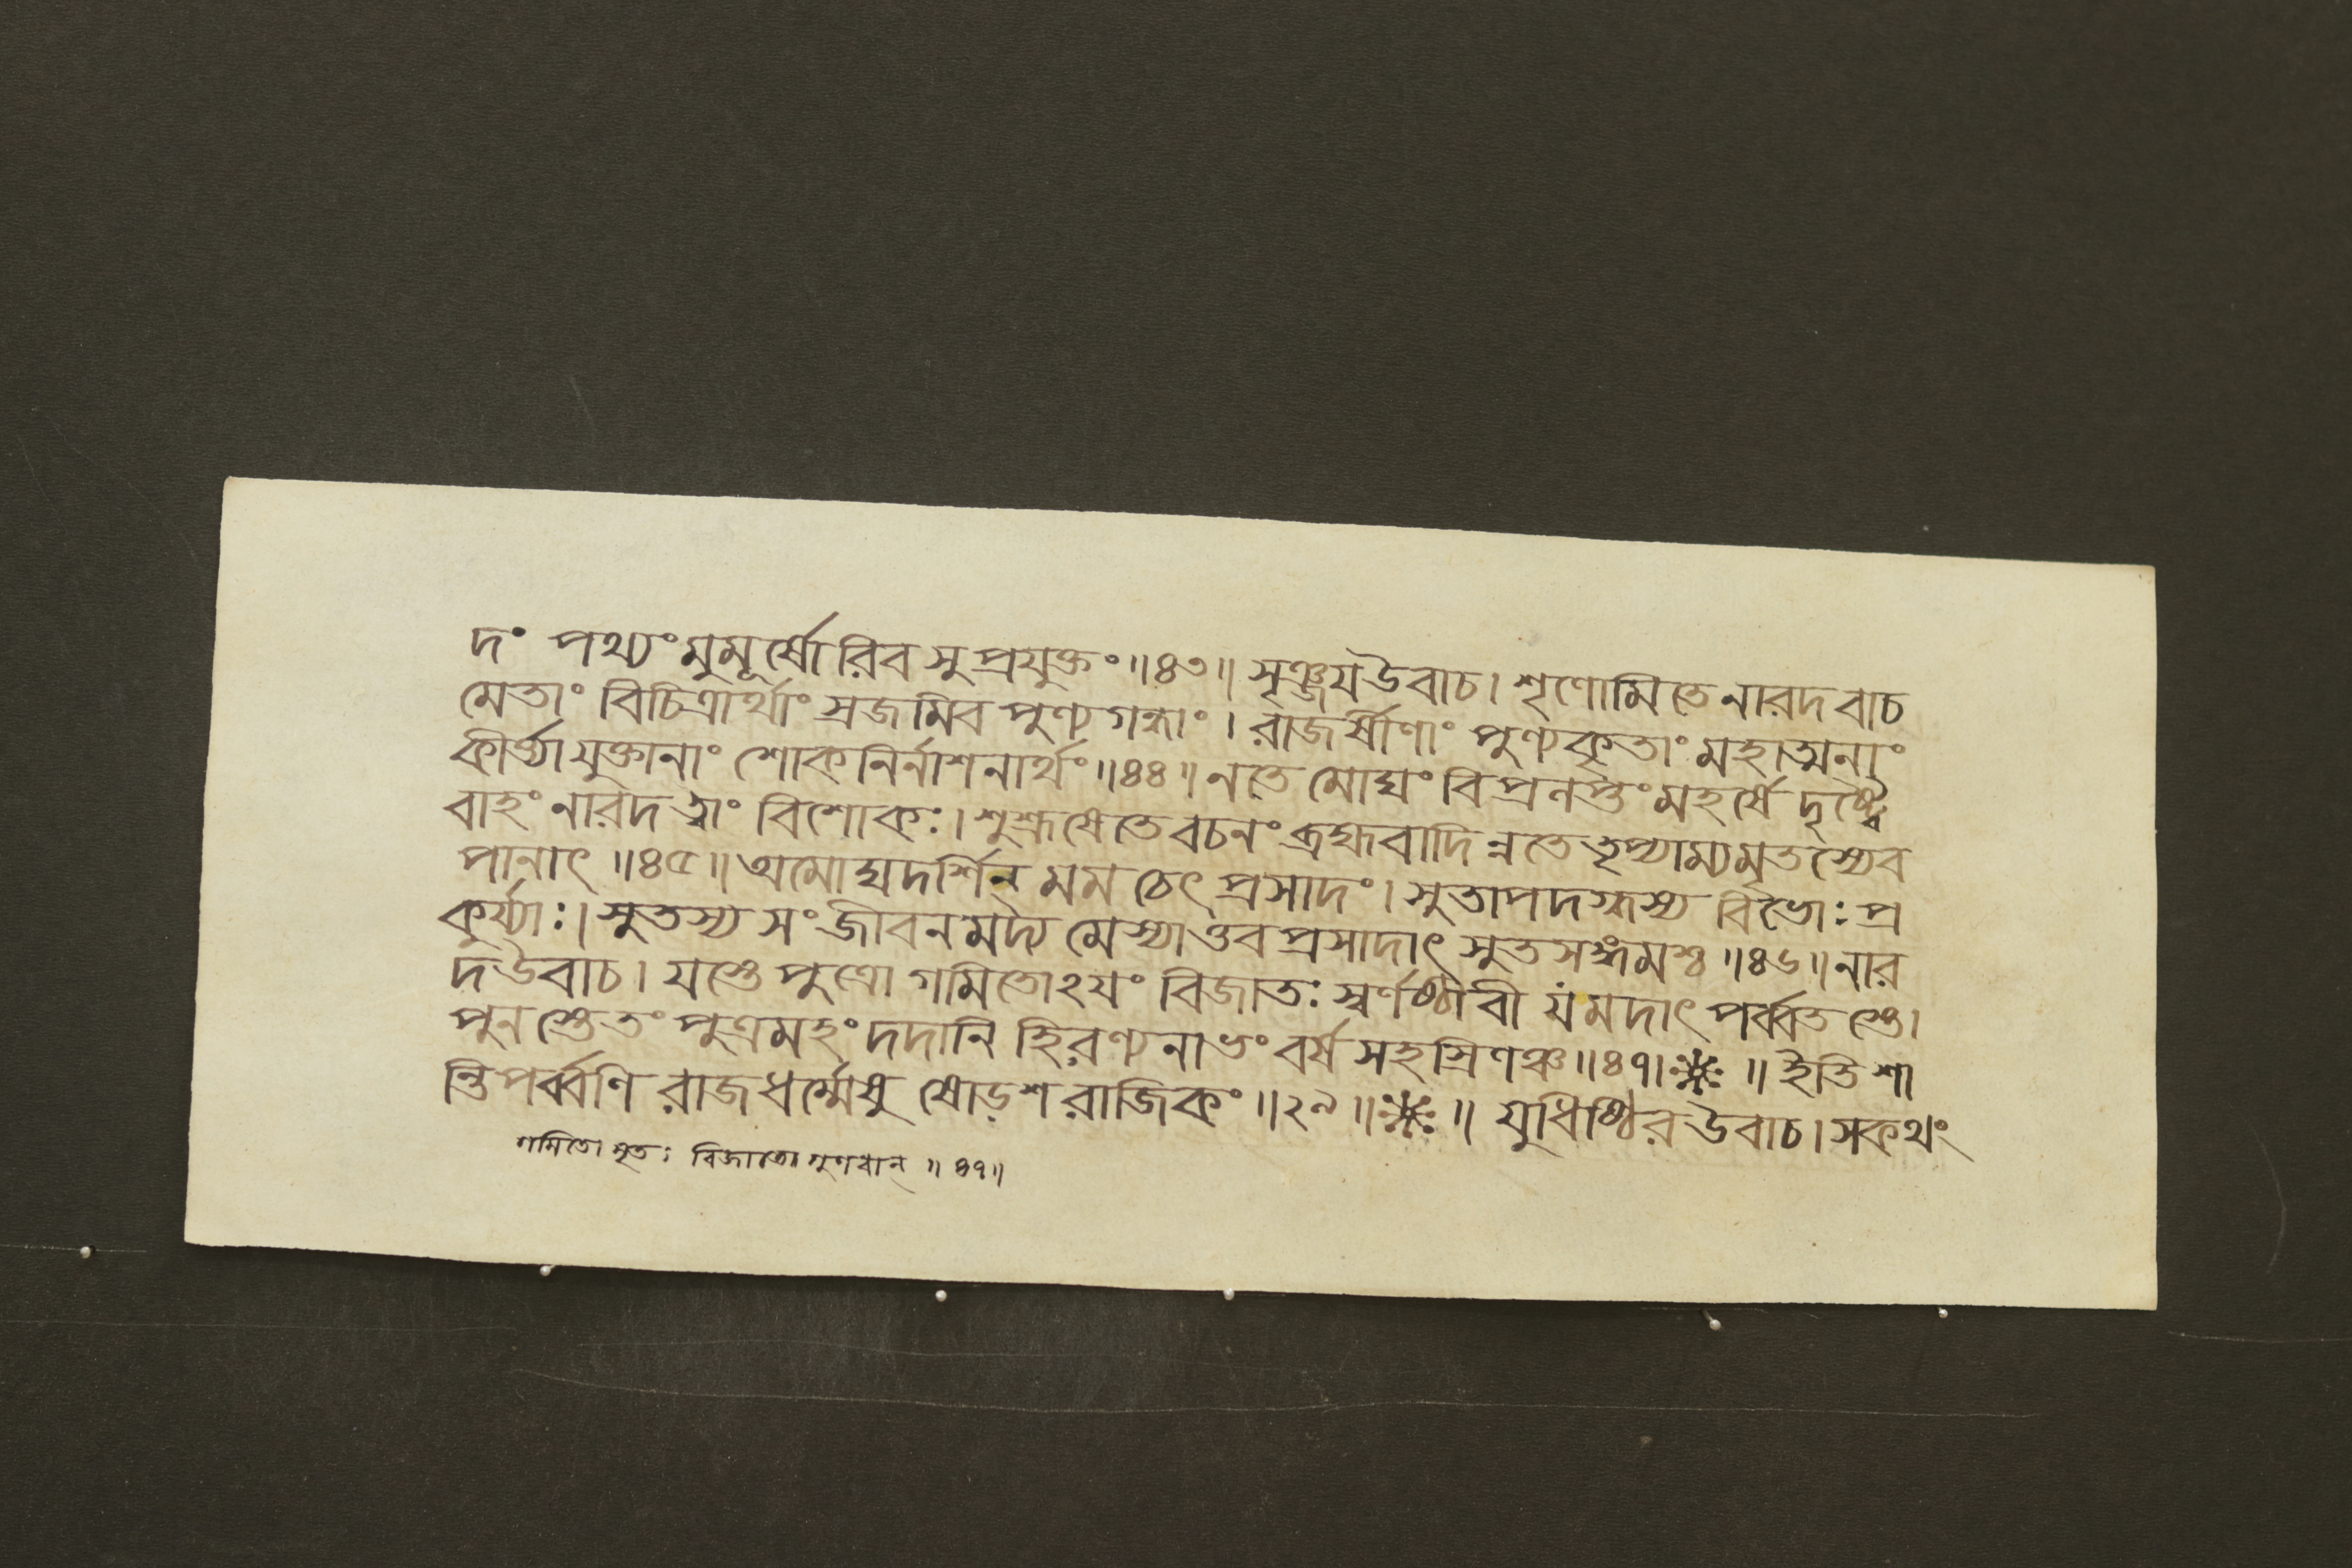 দং পথ্যং মুমূর্ষোরিব সুপ্রযুক্তং॥৪৩॥ সৃঞ্জয উবাচ। শৃণোমি তে নারদ বাচ
মেতাং বিচিত্রার্থাং স্রজমিব পুণ্যগন্ধাং। রাজর্ষীণাং পুণ্যকৃতাং মহাত্মনাং
কীর্ত্ত্যা যুক্তানাং শোকনির্নাশনার্থং॥৪৪॥ ন তে মোঘং বিপ্রলপ্তং মহর্ষে দৃষ্ট্বৈ
বাহং নারদ ত্বাং বিশোকঃ। শুশ্রূষে তে বচনং ব্রহ্মবাদিন্ন তে তৃপ্যাম্যমৃতস্যেব
পানাৎ ॥৪৫॥ অমোঘদর্শিন্ মম চেৎ প্রসাদং। সুতাপদগ্ধস্য বিভোঃ প্র
কুর্য্যাঃ। সুতস্য সংজীবনমদ্য মে স্যাত্তব প্রসাদাৎ সুতসঙ্গমশ্চ॥৪৬॥ নার
দ উবাচ। যস্তে পুত্রো গমিতোঽযং বিজাতঃ স্বর্ণষ্ঠীবী যমদাৎ পর্ব্বতস্তে।
পুনস্তেতং পুত্রমহং দদানি হিরণ্যনাভং বর্ষসহস্রিণঞ্চ॥৪৭॥ ॥ ইতি শা
ন্তিপর্ব্বণি রাজধর্ম্মেষু ষোড়শরাজিকং॥২৯॥ ॥ যুধিষ্ঠির উবাচ। স কথং
গমিতো মৃতঃ বিজাতো গুণবান্ ॥৪৭॥